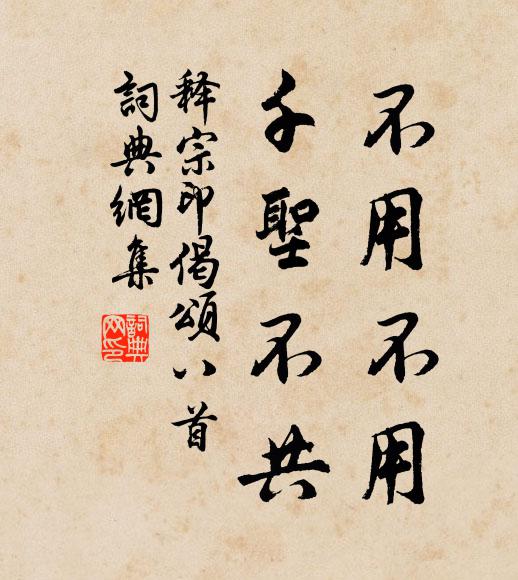 不用不用
千聖不共
释宗印偈頌八首
詞典網集
詞典網印